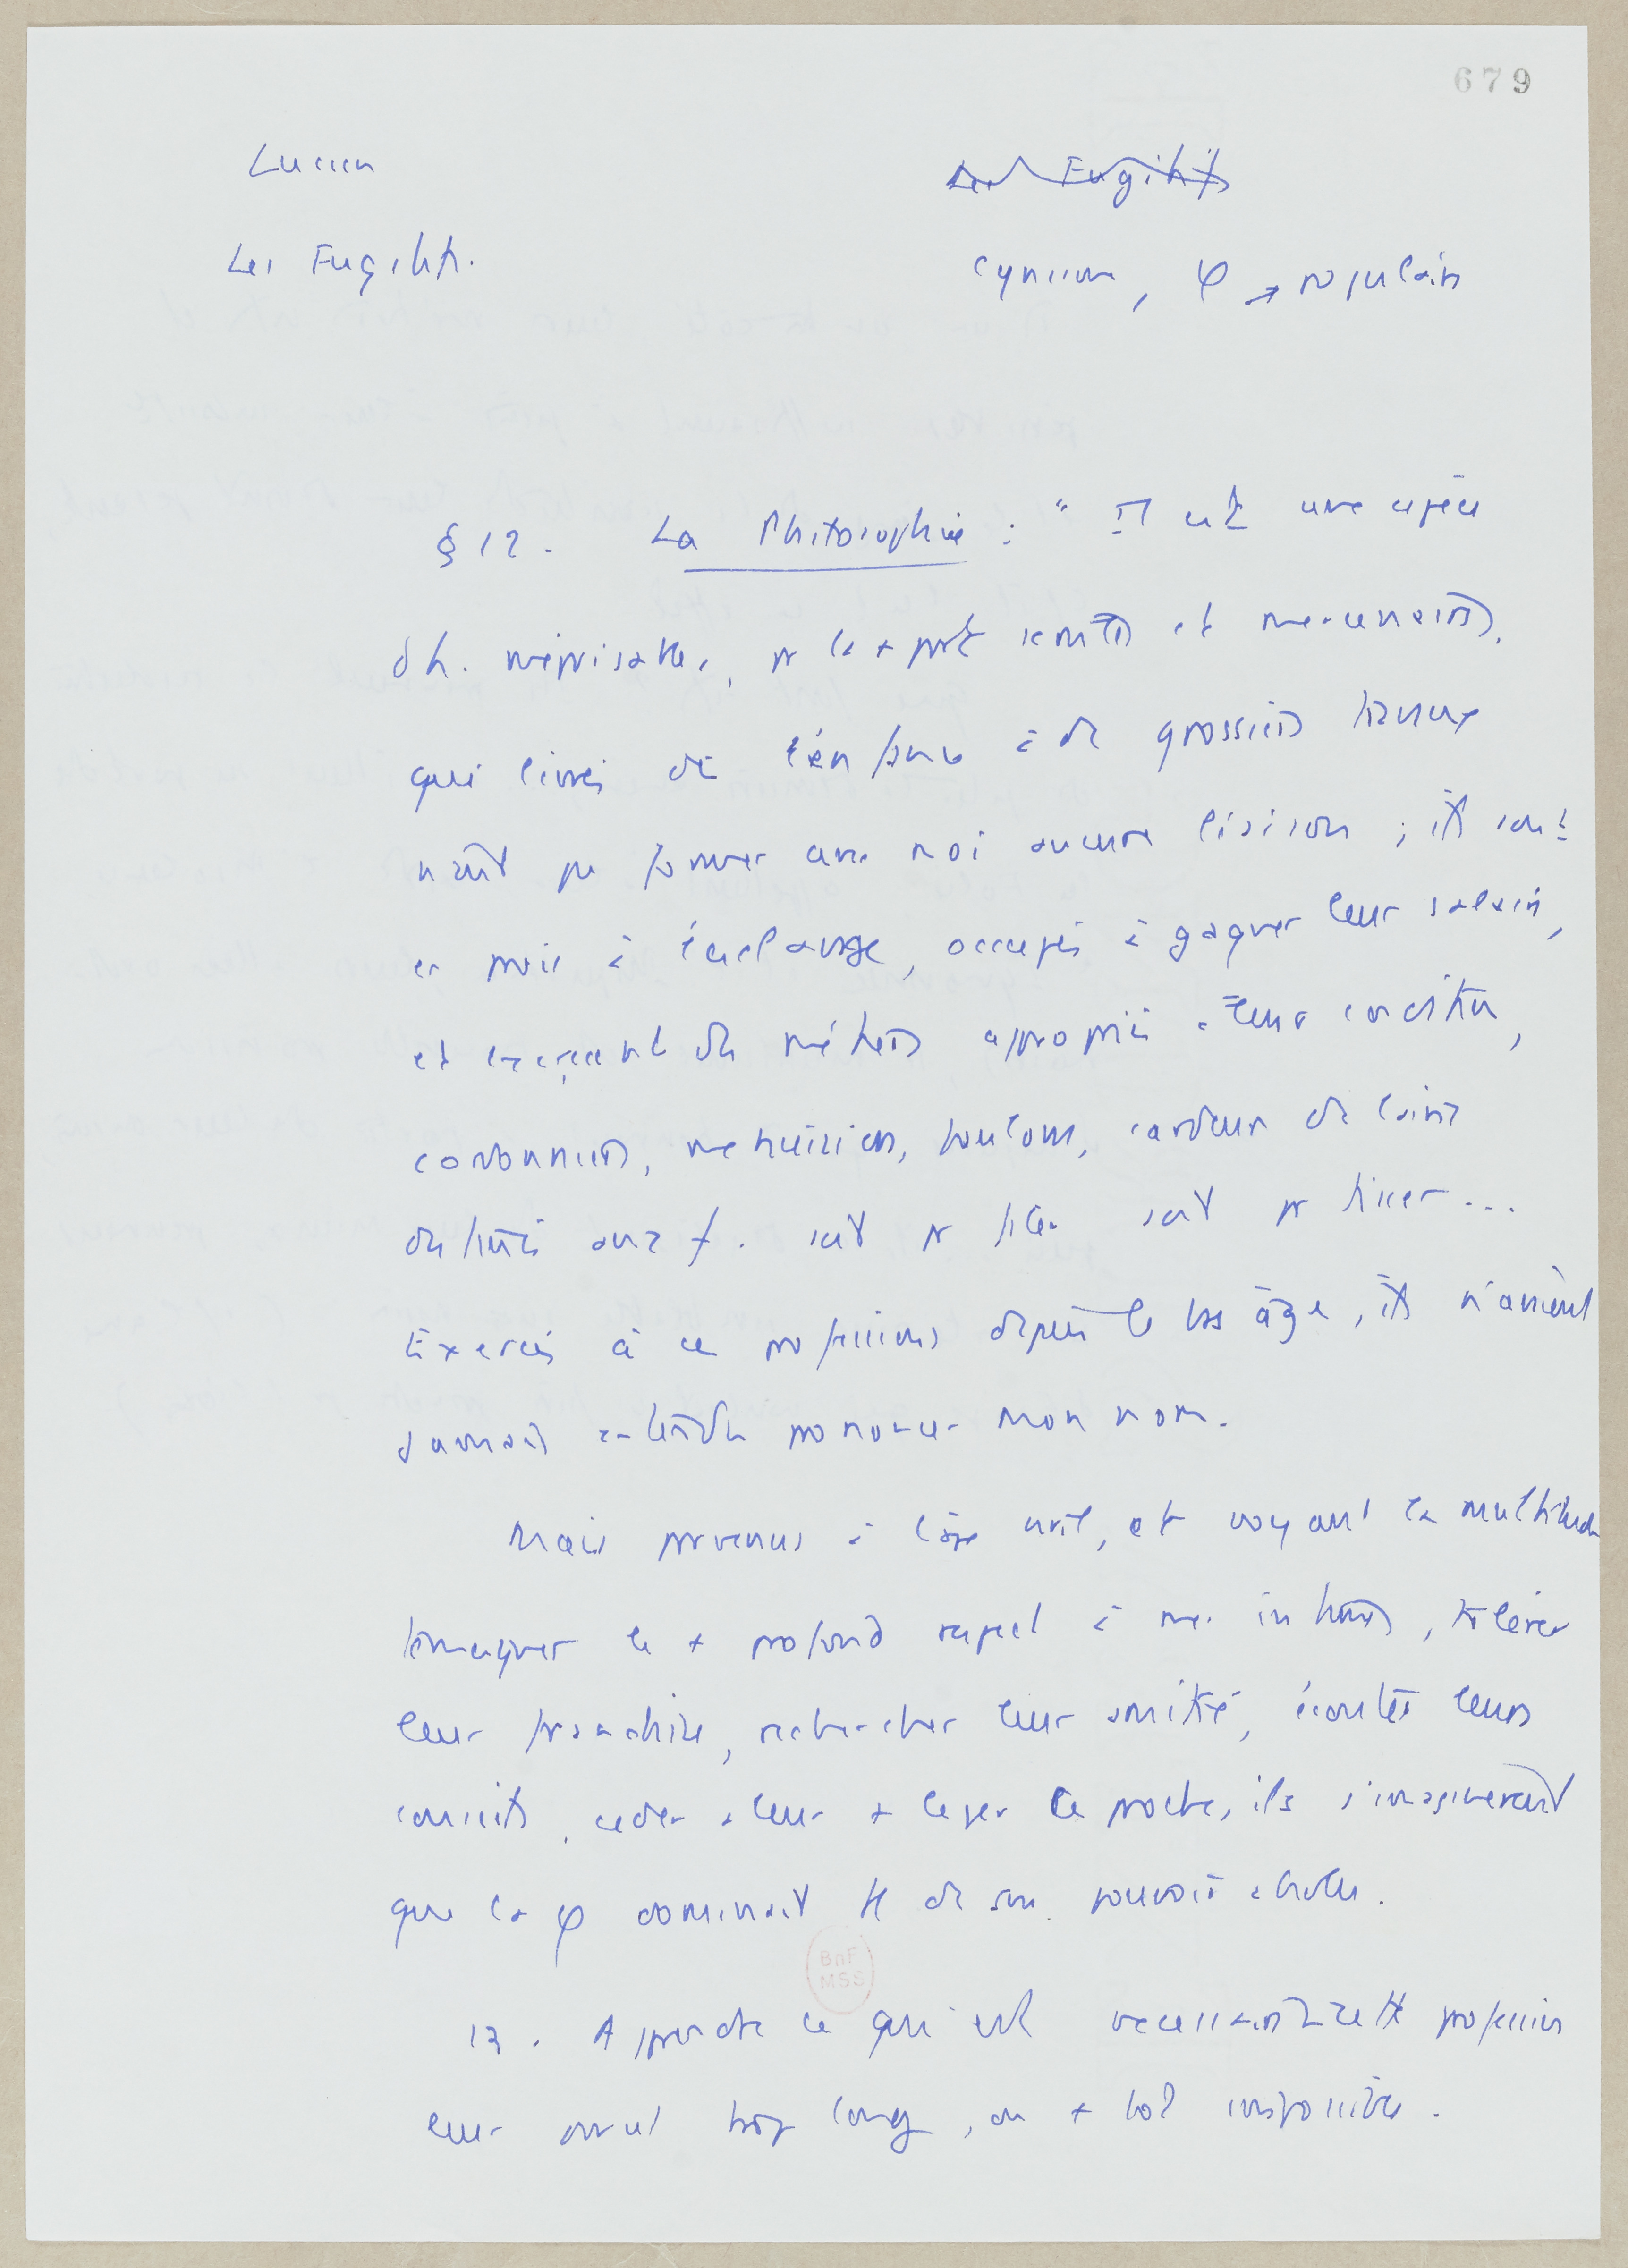 679
Lucien
Les Fugitifs
Les Fugitifs.
Cynisme, φ → populaire
§ 12. La Philosophie : " Il est une espèce
d'h. méprisables, pr la + part serviles et mercenaires,
qui livrés dès l'enfance à de grossiers travaux
n'ont pu former avec moi aucune liaison ; ils sont
en proie à l'esclavage, occupés à gagner leur salaire,
et exerçant des métiers appropriés à leur condition,
cordonniers, menuisiers, foulons, cardeurs de laine
destinée aux f. soit pr filer soit pr tisser ...
Exercés à ces professions depuis le bas âge, ils n'avaient
jamais entendu prononcer mon nom.
Mais parvenus à l'âge viril, et voyant la multitude
témoigner le + profond respect à mes intimes, tolérer
leur franchise, rechercher leur amitié, écouter leurs
conseils, céder à leur + léger reproche, ils s'imaginèrent
que la φ dominait tt de son pouvoir absolu.
13. Apprendre ce qui est nécessaire à cette profession
leur parut trop long, ou + tôt impossible.
BnF
MSS